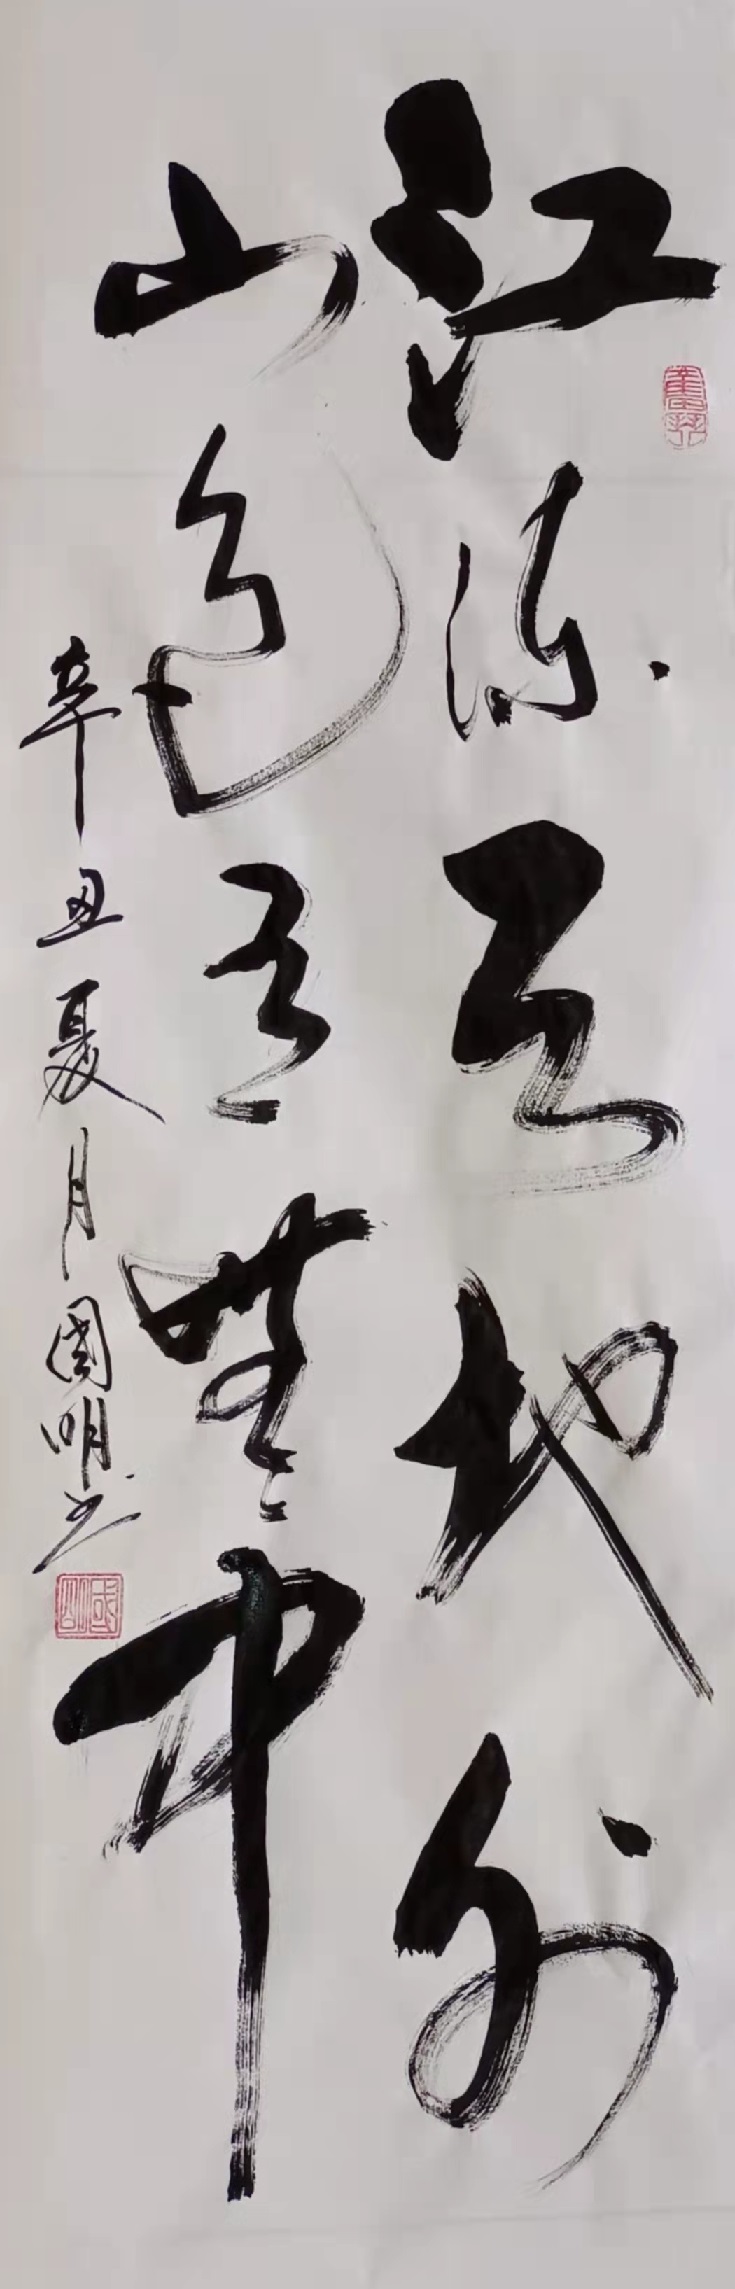 江流天地外
山色有無中
辛丑夏月國明书